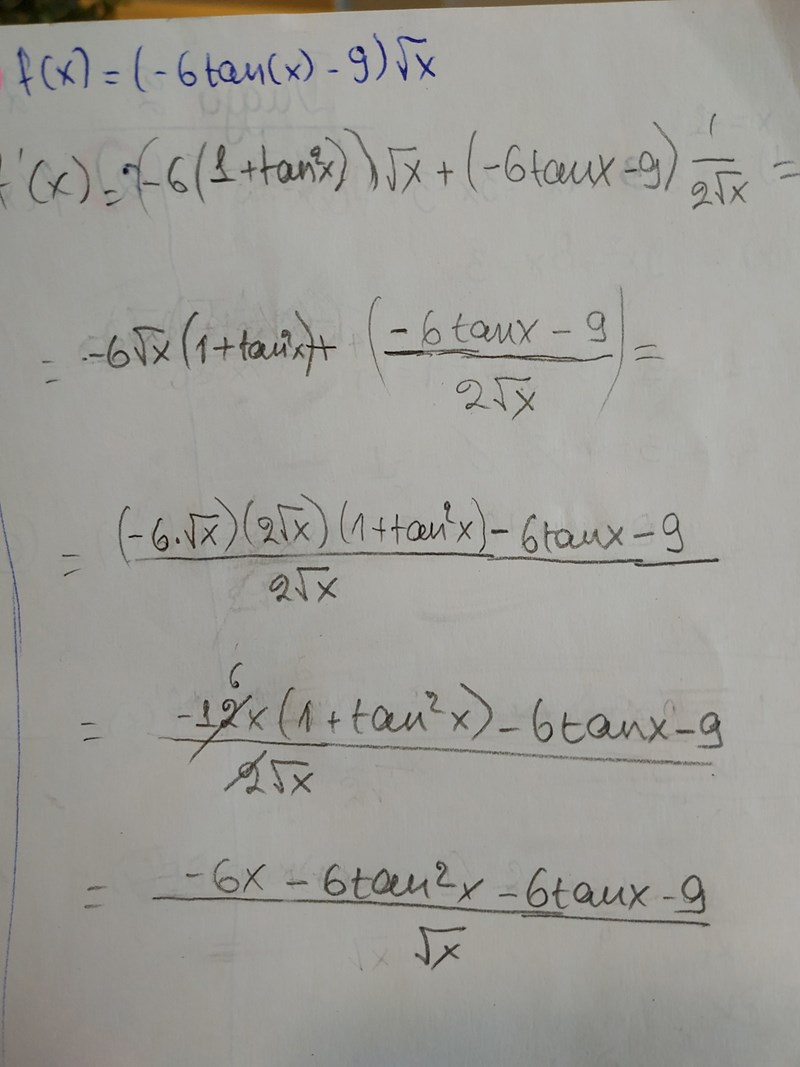 f(x) = (-6tan(x) - 9)√x
f'(x) = (-6(1+tan²x))√x + (-6tanx - 9) 1/(2√x) =
= -6√x (1+tan²x) + ((-6tanx - 9)/(2√x)) =
= ((-6·√x)(2√x)(1+tan²x) - 6tanx - 9)/(2√x)
6
= (-12x(1+tan²x) - 6tanx - 9)/(2√x)
= (-6x - 6tan²x - 6tanx - 9)/√x